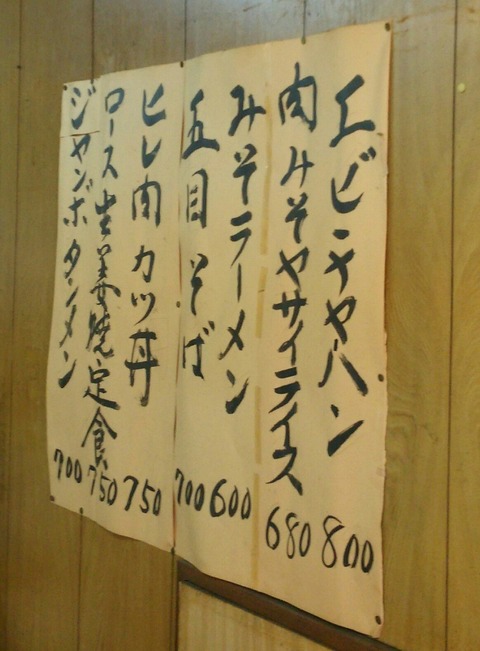 エビチャーハン 800
肉みそヤサイライス 680
みそラーメン 600
五目そば 700
ヒレ肉カツ丼 750
ロース生姜焼定食 750
ジャンボタンメン 700